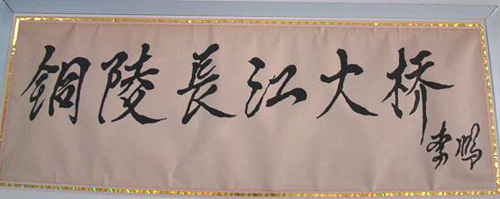 铜陵長江大桥
李鹏